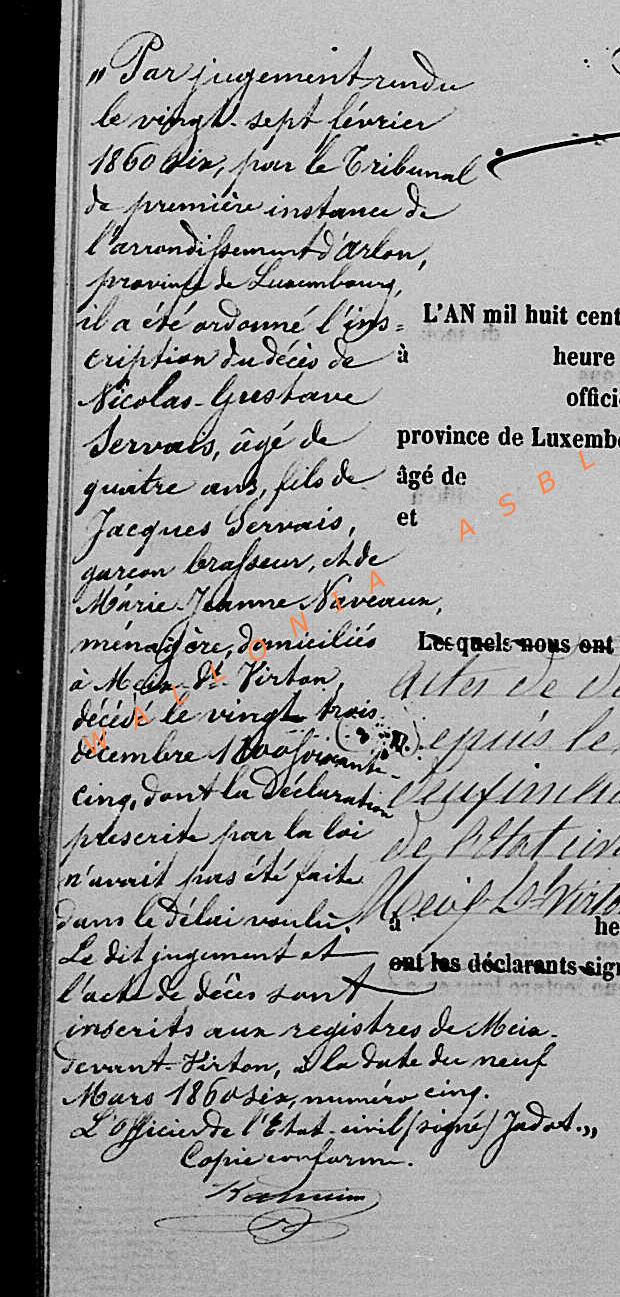 „ Par jugement rendu
le vingt-sept février
1860 six, par le Tribunal
de première instance de
l'arrondissement d'Arlon,
province de Luxembourg,
il a été ordonné l'ins=
cription du décès de
Nicolas-Gustave
Servais, âgé de
quatre ans, fils de
Jacques Servais,
garçon brasseur, et de
Marie-Jeanne Naveaux,
ménagère, domiciliés
à Meix-dt-Virton,
décédé le vingt trois
décembre 1800 soixante-
cinq, dont la déclaration
prescrite par la loi
n'avait pas été faite
dans le délai voulu.
Le dit jugement et
l'acte de décès sont
inscrits aux registres de Meix-
devant-Virton, à la date du neuf
Mars 1860 six, numéro cinq.
L'officier de l'Etat-civil (signé) Jadot. „
Copie conforme.
L'AN mil huit cent
à heure
offici
province de Luxemb
âgé de
et
Lesquels nous ont
actes de d
epuis le
de l'Etat civ
Meix-dt-Virto
à he
ont les déclarants sign
WALLONIA ASBL